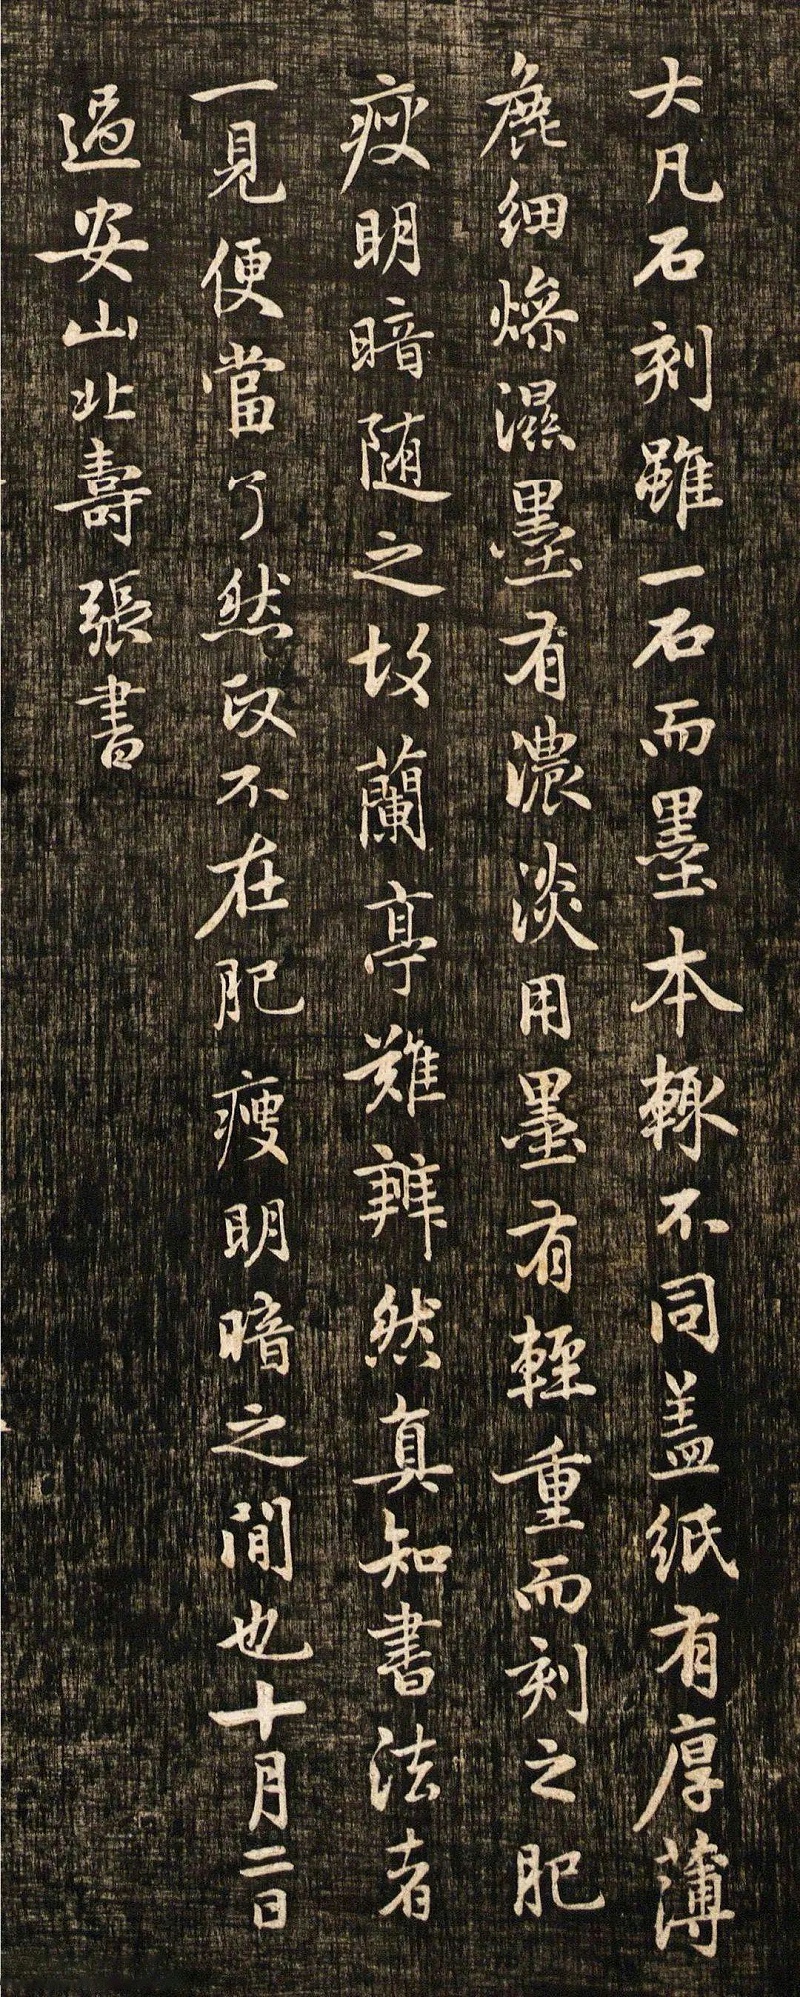 大凡石刻雖一石而墨本輙不同盖紙有厚薄
麁細燥濕墨有濃淡用墨有輕重而刻之肥
瘦明暗随之故蘭亭難辨然真知書法者
一見便當了然政不在肥瘦明暗之間也十月二日
過安山北壽張書